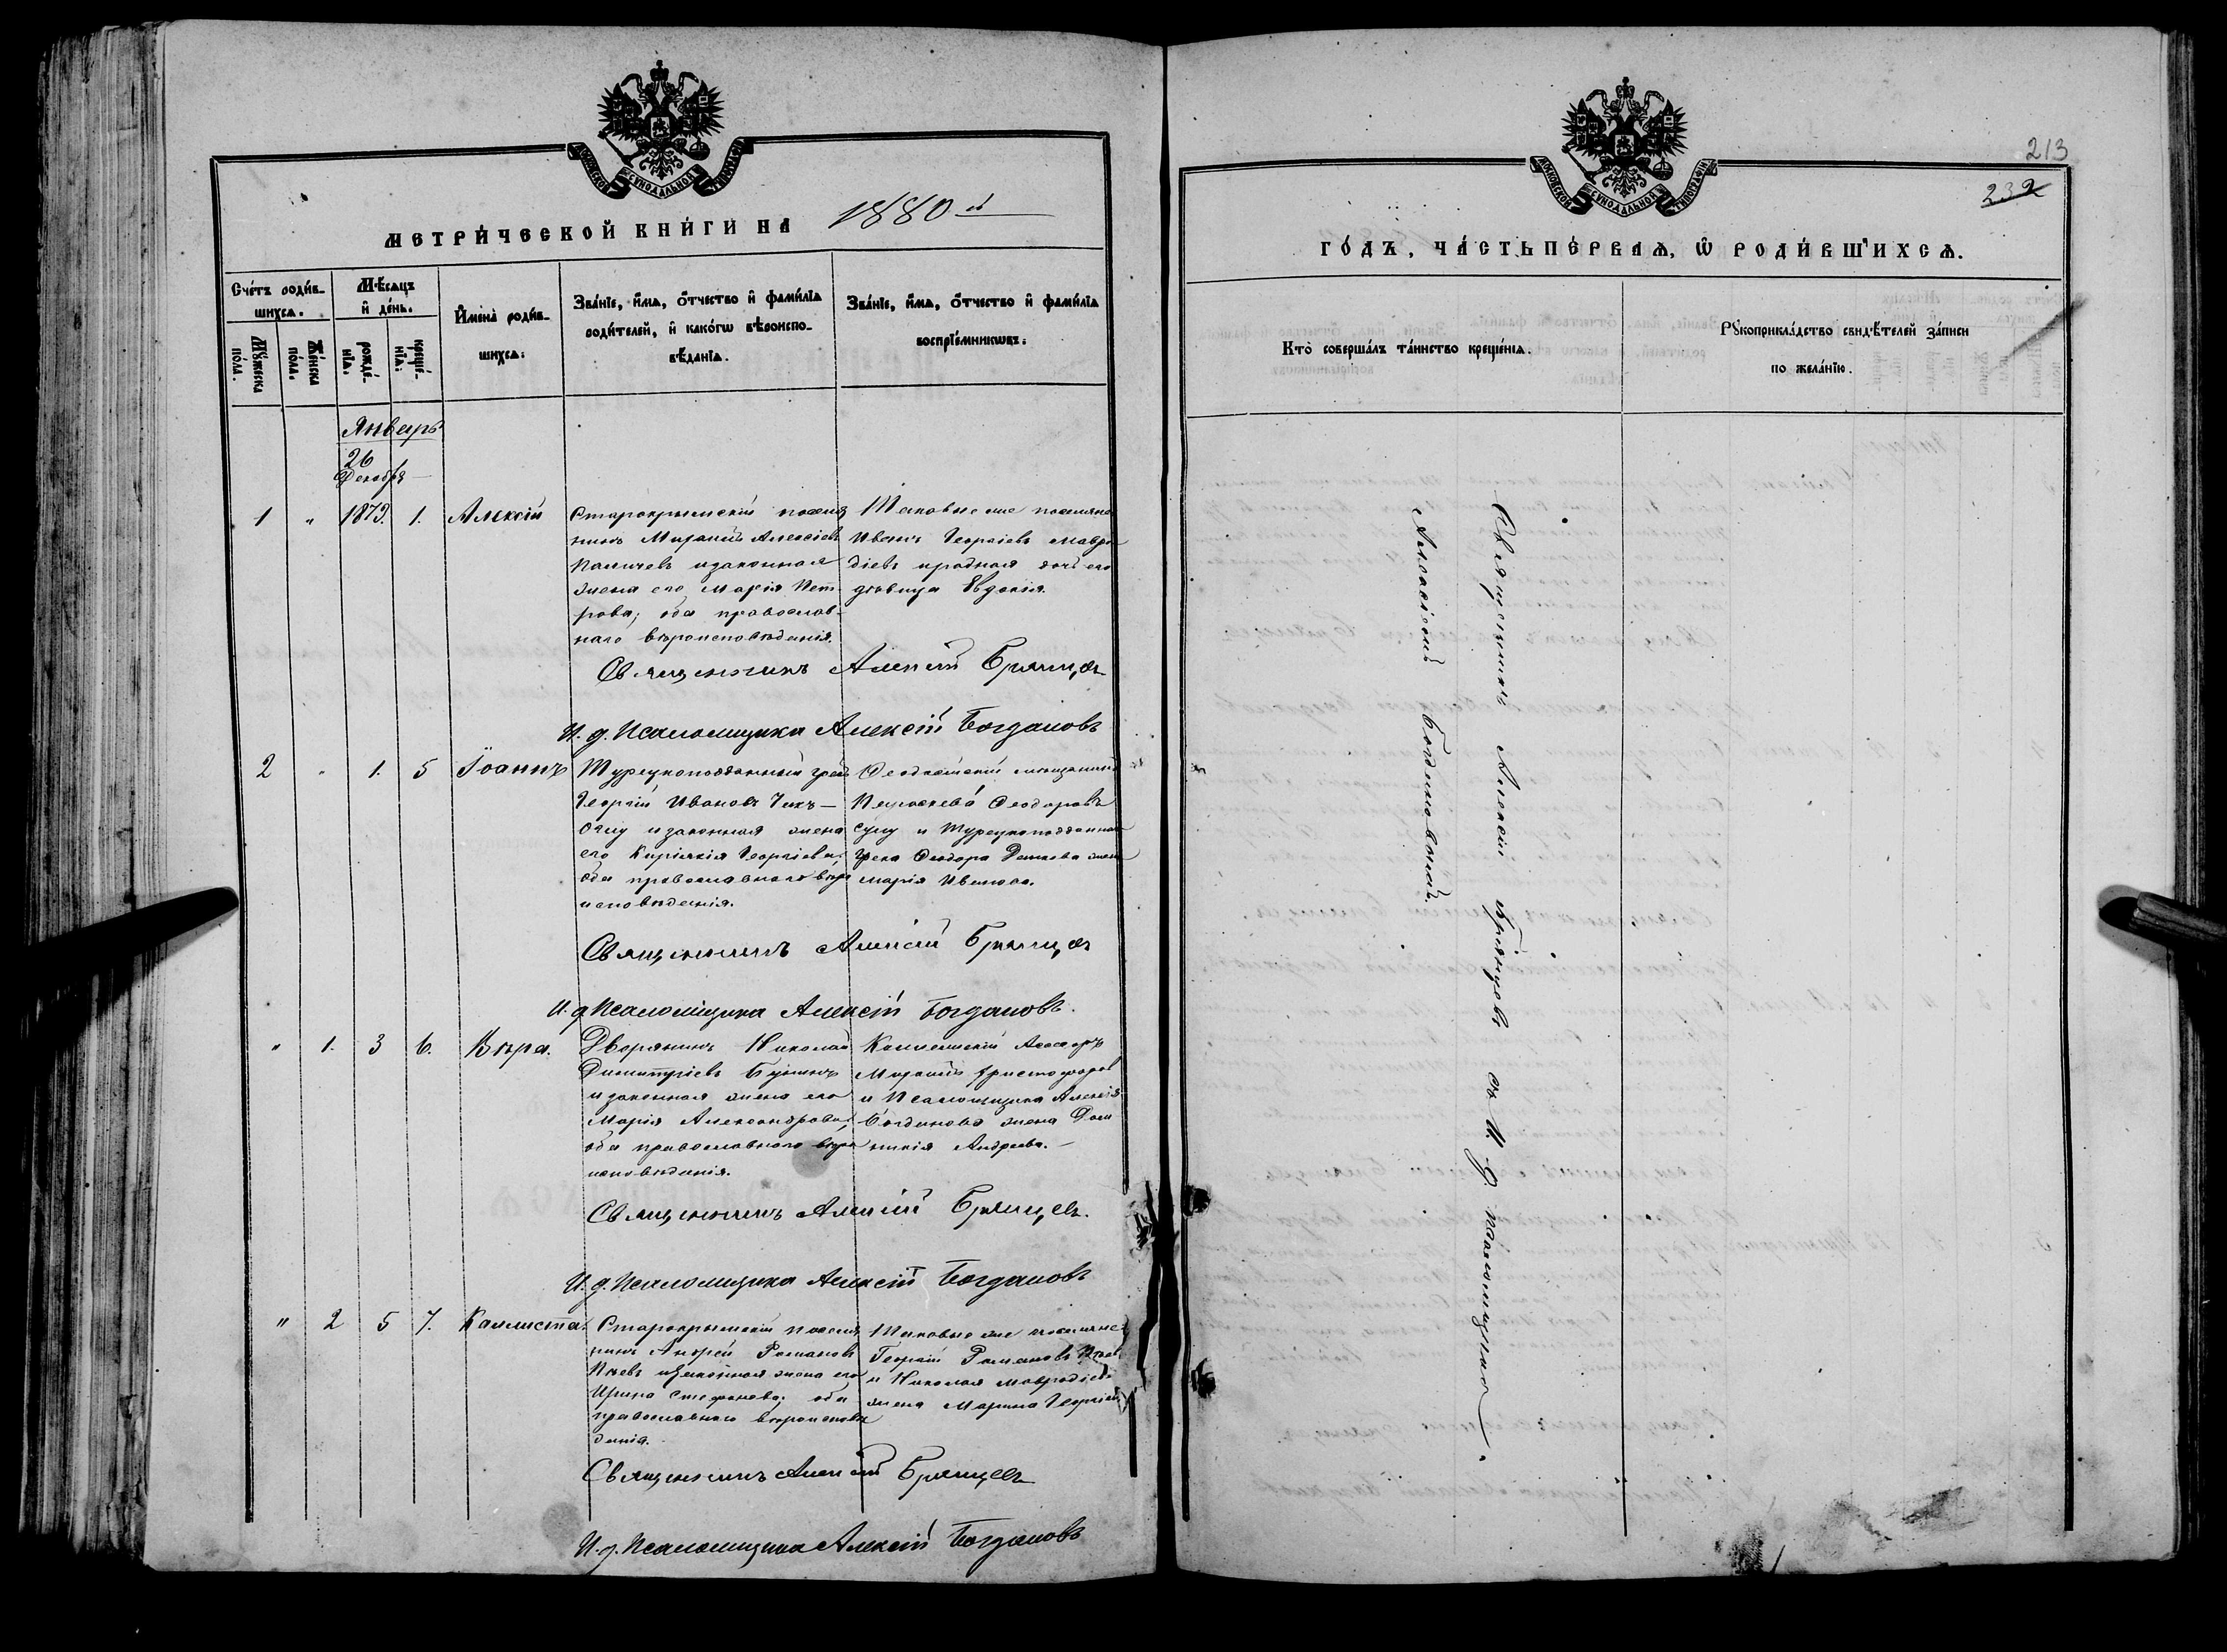 МОСКОВСКОЙ СѴНОДАЛЬНОЙ ТИПОГРАФІИ
МЕТРИ́ЧЕСКОЙ КНИ́ГИ НА 1880 й
Сче́тъ роди́в-
шихсѧ.
Мꙋ́жеска
по́ла.
Же́нска
по́ла.
Мѣ́сѧцъ
и҆ де́нь.
рожде́-
нїѧ.
креще́-
нїѧ.
И҆мена̀ роди́в-
шихсѧ.
Зва́нїе, и҆́мѧ, о҆́тчество и҆ фами́лїѧ
роди́телей, и҆ како́гѡ вѣроиспо-
вѣ́данїѧ.
Зва́нїе, и҆́мѧ, о҆́тчество и҆ фами́лїѧ
воспрїе́мникѡвъ.
Январь
26
Декабря
1 " 1879. 1. Алексій
Старокрымскій поселя
нинъ Алексіевъ
и законная
жена его Марія Пет-
рова; оба православ-
наго вѣроисповѣданія.
Таковые же поселяне
Иванъ Георгіевъ Мавро
діевъ и родная дочь его
дѣвица Евдокія.
Священникъ Алексій Брянцевъ
И. д. Псаломщика Алексій Богдановъ
2 " 1. 5 Іоаннъ
Турецкоподданный грекъ
Георгій Ивановъ
Оглу и законная жена
его Киріакія Георгіева;
оба православнаго вѣро
исповѣданія.
Ѳеодосійскій мѣщанинъ
Ѳеодоровъ
и Турецкоподданнаго
Грека Ѳеодора жена
Марія Иванова.
Священникъ Алексій Брянцевъ
И. д. Псаломщика Алексій Богдановъ.
" 1. 3 6. Вѣра.
Дворянинъ Николай
Димитріевъ
и законная жена его
Марія Александрова;
оба православнаго вѣро
исповѣданія.
Коллежскій Асессоръ
Христофоровъ
и Псаломщика Алексія
Богданова жена Дом
никія Андреева.
Священникъ Алексій Брянцевъ.
И. д. Псаломщика Алексій Богдановъ
" 2 5 7. Каллиста.
Старокрымскій поселя
нинъ Андрей Романовъ
и законная жена его
Ирина Стефанова; оба
православнаго вѣроисповѣ
данія.
Таковые же поселяне
Георгій Романовъ
и Николая Мавродіева
жена Марина Георгіева
Священникъ Алексій Брянцевъ
И. д. Псаломщика Алексій Богдановъ
213
232
МОСКОВСКОЙ СѴНОДАЛЬНОЙ ТИПОГРАФІИ
ГО́ДЪ, ЧА́СТЬ ПЕ́РВАѦ, Ѡ҆ РОДИ́ВШИХСѦ.
Кто̀ соверша́лъ та́инство креще́нїѧ.
Рꙋкоприкла́дство свидѣ́телей за́писи
по жела́нїю.
Священникъ Алексій Брянцевъ съ И. д. псаломщика
Алексіемъ Богдановымъ.